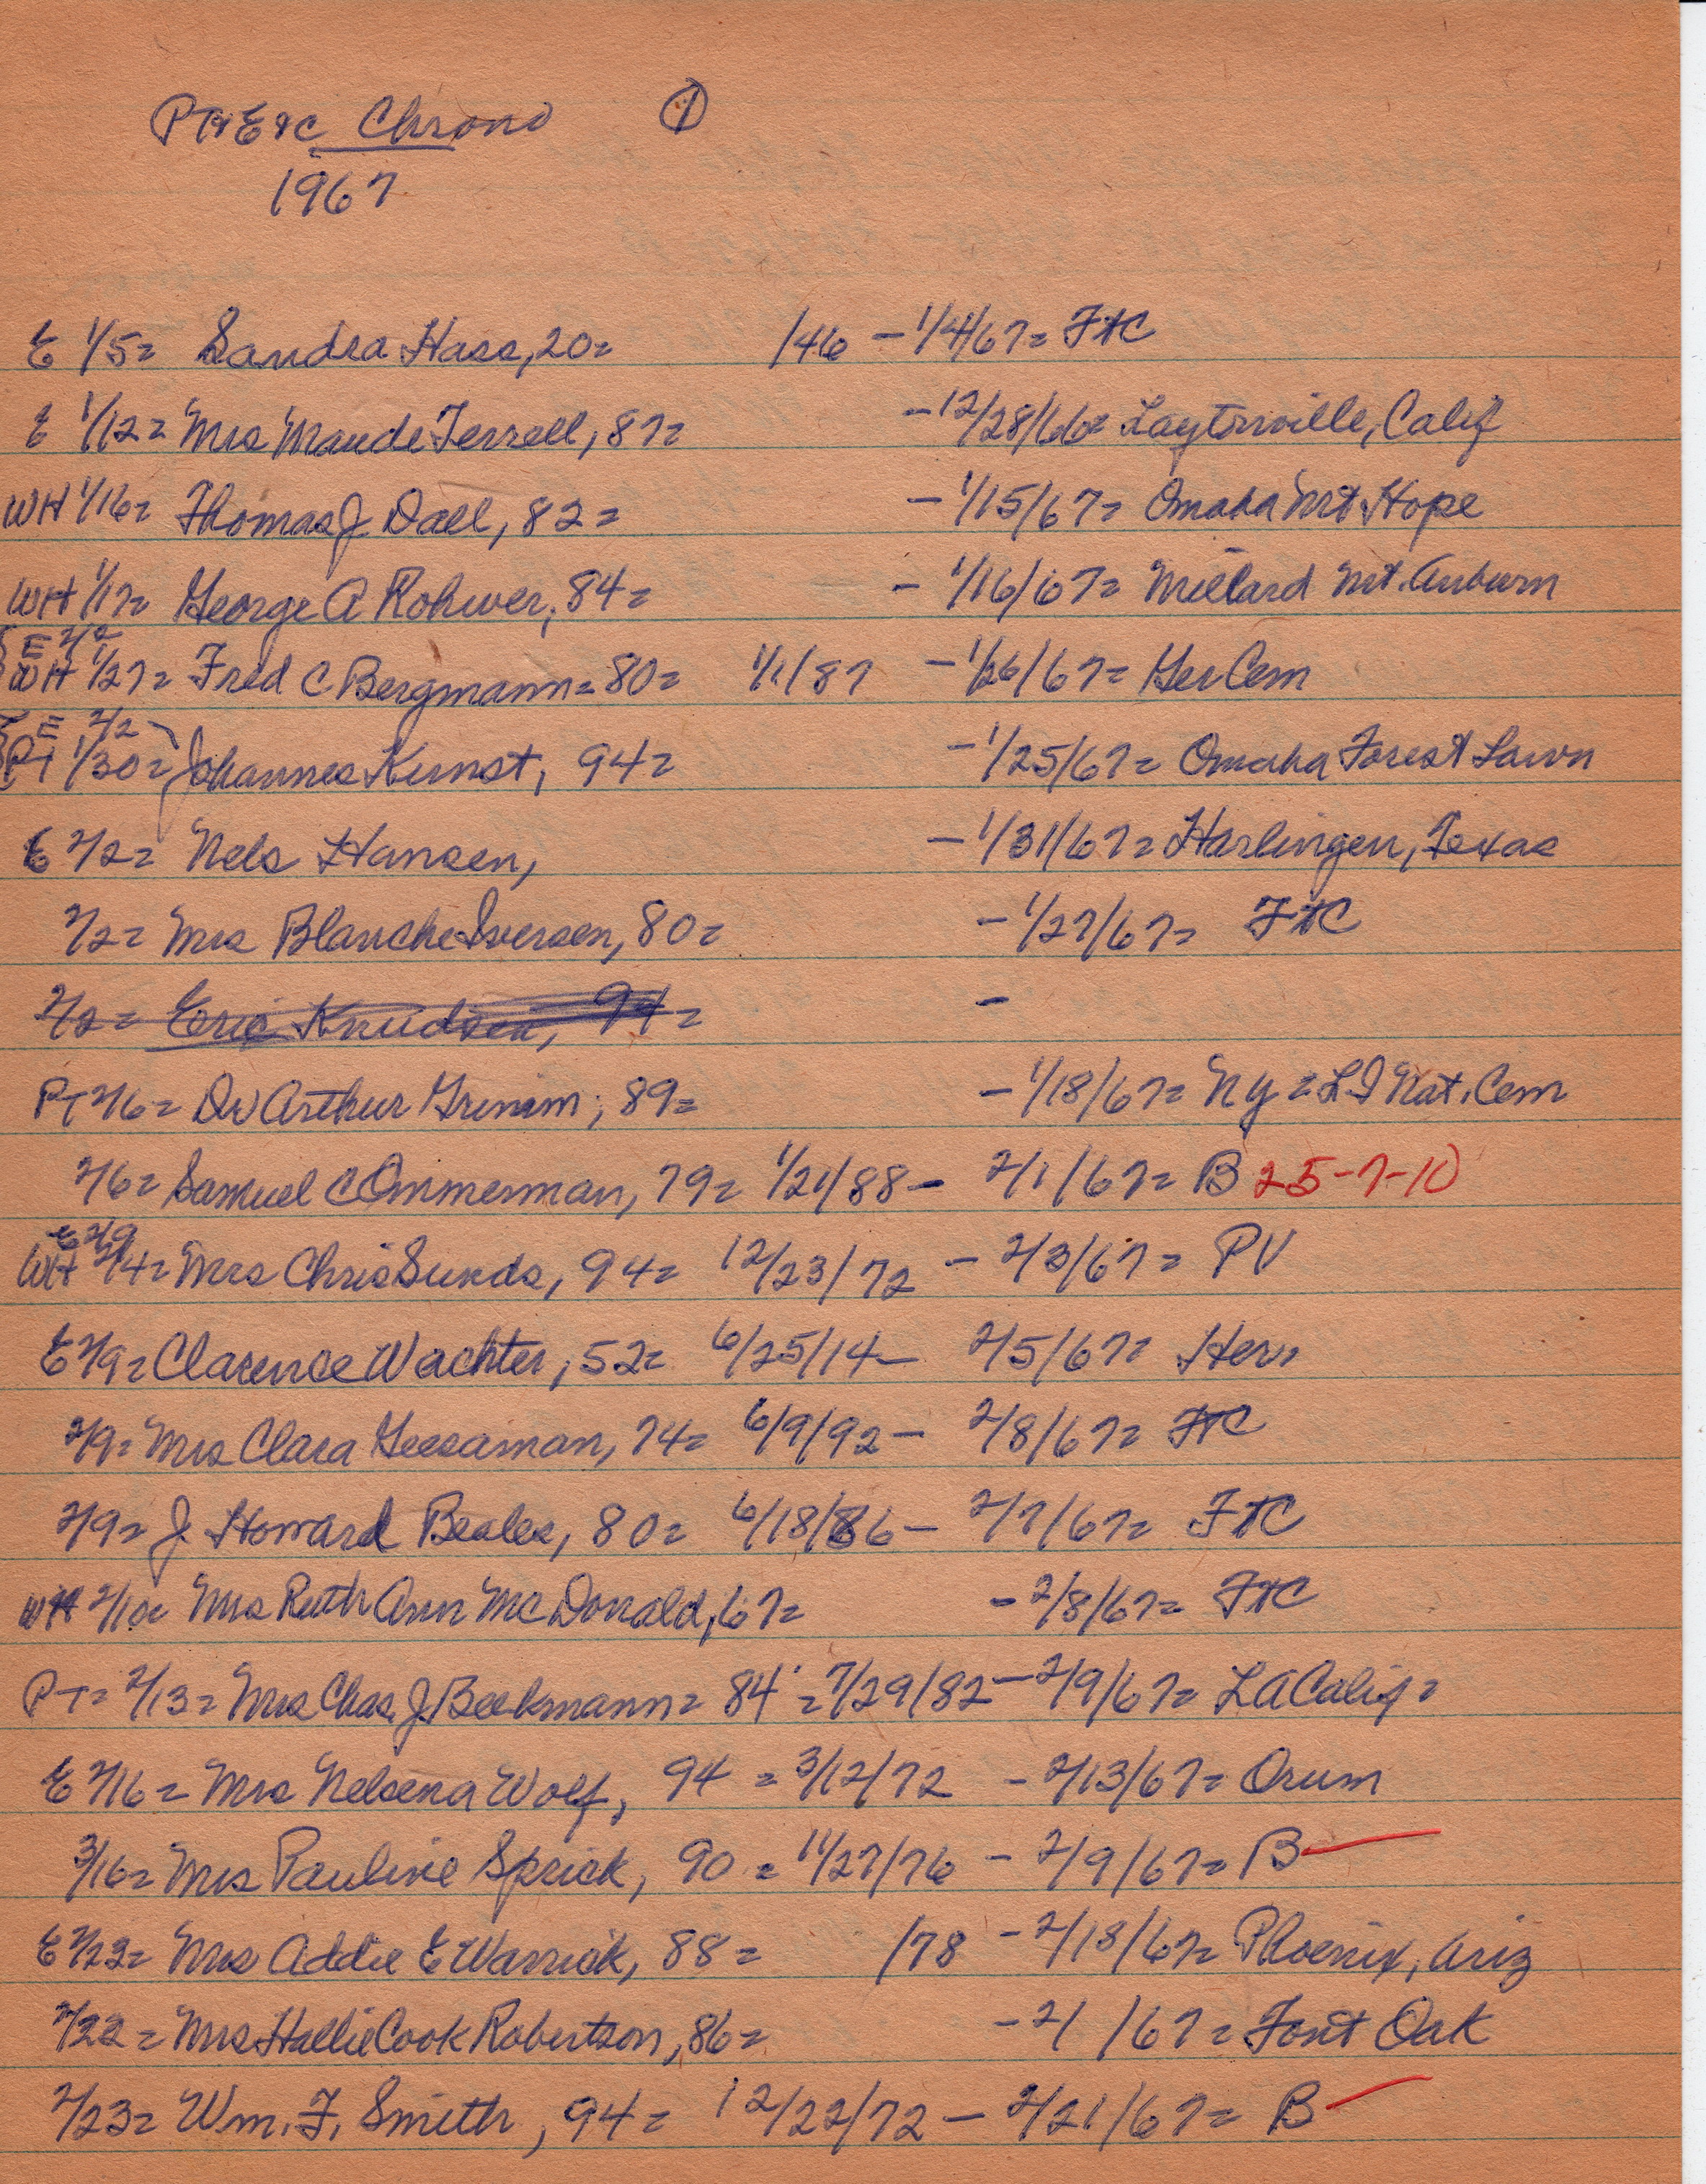 PT&E&c Chrono ①
1967
E 1/5= Sandra Hass, 20= /46 - 1/4/67= FtC
E 1/12= Mrs Maude Ferrell, 87= - 12/28/66= Laytonville, Calif
WH 1/16= Thomas J Dall, 82= - 1/15/67= Omaha Mt Hope
WH 1/17= George A Rohwer, 84= - 1/16/67= Millard Mt. Auburn
{ E 2/2
WH 1/27= Fred C Bergmann= 80= 1/1/87 - 1/26/67= Ger Cem
{ E 2/2
PT 1/30= Johannes Kunst, 94= - 1/25/67= Omaha Forest Lawn
E 2/2= Nels Hansen, - 1/31/67= Harlingen, Texas
2/2= Mrs Blanche Iversen, 80= - 1/27/67= FtC
2/2= Eric Knudsen, 94= -
PT 2/6= Dr Arthur Grimm, 89= - 1/18/67= NY= LI Nat. Cem
2/6= Samuel C Ommerman, 79= 1/21/88 - 2/1/67= B 25-7-10
E 2/9
WH 2/4= Mrs Chris Sunds, 94= 12/23/72 - 2/3/67= PV
E 2/9= Clarence Wachter, 52= 6/25/14 - 2/5/67= Her
2/9= Mrs Clara Geesaman, 74= 6/9/92 - 2/8/67= FtC
2/9= J. Howard Beales, 80= 6/18/86 - 2/7/67= FtC
WH 2/10= Mrs Ruth Ann McDonald, 67= - 2/8/67= FtC
PT= 2/13= Mrs Chas. J. Beekmann= 84 = 7/29/82 - 2/9/67= LA Calif=
E 2/16= Mrs Nelsena Wolf, 94 = 3/12/72 - 2/13/67= Orum
3/16= Mrs Pauline Sprick, 90 = 11/27/76 - 2/9/67= B
E 2/22= Mrs Addie E Warrick, 88= /78 - 2/18/67= Phoenix, Ariz
2/22= Mrs Hallie Cook Robertson, 86= - 2/ /67= Font Oak
2/23= Wm. F. Smith, 94= 12/22/72 - 2/21/67= B